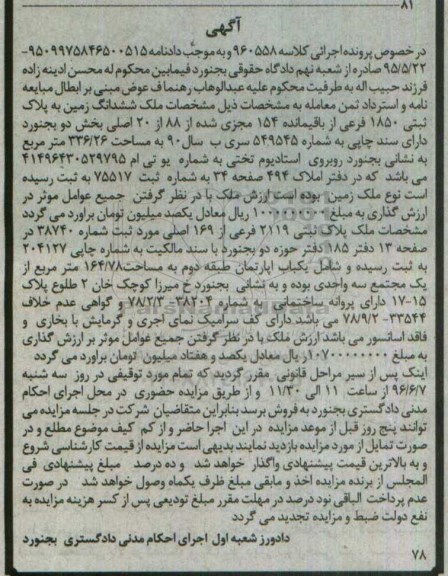 ۸۱
آگهی
در خصوص پرونده اجرائی کلاسه ۹۶۰۵۵۸ و به موجب دادنامه ۹۵۰۹۹۷۵۸۴۶۵۰۰۵۱۵-
۹۵/۵/۲۲ صادره از شعبه نهم دادگاه حقوقی بجنورد فیمابین محکوم له محسن ادینه زاده
فرزند حبیب اله به طرفیت محکوم علیه عبدالوهاب رهنما ف عوض مبنی بر ابطال مبایعه
نامه و استرداد ثمن معامله به مشخصات ذیل مشخصات ملک ششدانگ زمین به پلاک
ثبتی ۱۸۵۰ فرعی از باقیمانده ۱۵۴ مجزی شده از ۸۸ از ۲۰ اصلی بخش دو بجنورد
دارای سند چاپی به شماره ۵۴۹۵۴۵ سری ب سال ۹۰ به مساحت ۳۳۶/۲۶ متر مربع
به نشانی بجنورد روبروی استادیوم تختی به شماره یو تی ام ۴۱۴۹۶۴۳۰۵۲۹۷۹۵
می باشد که در دفتر املاک ۴۹۴ صفحه ۳۴ به شماره ثبت ۷۵۵۱۷ به ثبت رسیده
است نوع ملک زمین بوده است ارزش ملک با در نظر گرفتن جمیع عوامل موثر در
ارزش گذاری به مبلغ ۱۰۰۰۰۰۰۰۰۰ ریال معادل یکصد میلیون تومان براورد می گردد
مشخصات ملک پلاک ثبتی ۲۱۱۹ فرعی از ۱۶۹ اصلی مورد ثبت شماره ۳۸۷۴۰ در
صفحه ۱۳ دفتر ۱۸۵ دفتر حوزه دو بجنورد با سند مالکیت به شماره چاپی ۲۰۴۱۲۷
به ثبت رسیده و شامل یکباب اپارتمان طبقه دوم به مساحت ۱۶۴/۷۸ متر مربع از
یک مجتمع سه واحدی بوده و به نشانی بجنورد خ میرزا کوچک خان ۲ طلوع پلاک
۱۵-۱۷ دارای پروانه ساختمانی به شماره ۳۸۲۰۴-۷۸/۲/۳ و گواهی عدم خلاف
۳۳۵۴۴-۷۸/۹/۲ می باشد دارای کف سرامیک نمای اجری و گرمایش با بخاری و
فاقد اسانسور می باشد ارزش ملک با در نظر گرفتن جمیع عوامل موثر بر ارزش گذاری
به مبلغ ۱۰۷۰۰۰۰۰۰۰۰ ریال معادل یکصد و هفتاد میلیون تومان براورد می گردد
اینک پس از سیر مراحل قانونی مقرر گردید که تمام مورد توقیفی در روز سه شنبه
۹۶/۶/۷ از ساعت ۱۱ الی ۱۱/۳۰ و از طریق مزایده حضوری در محل اجرای احکام
مدنی دادگستری بجنورد به فروش برسد بنابراین متقاضیان شرکت در جلسه مزایده می
توانند پنج روز قبل از موعد مزایده در این اجرا حاضر و از کم کیف موضوع مطلع و در
صورت تمایل از مورد مزایده بازدید نمایند بدیهی است مزایده از قیمت کارشناسی شروع
و به بالاترین قیمت پیشنهادی واگذار خواهد شد و ده درصد مبلغ پیشنهادی فی
المجلس از برنده مزایده اخذ و مابقی مبلغ ظرف یکماه وصول خواهد شد در صورت
عدم پرداخت الباقی نود درصد در مهلت مقرر مبلغ تودیعی پس از کسر هزینه مزایده به
نفع دولت ضبط و مزایده تجدید می گردد
دادورز شعبه اول اجرای احکام مدنی دادگستری بجنورد
۷۸